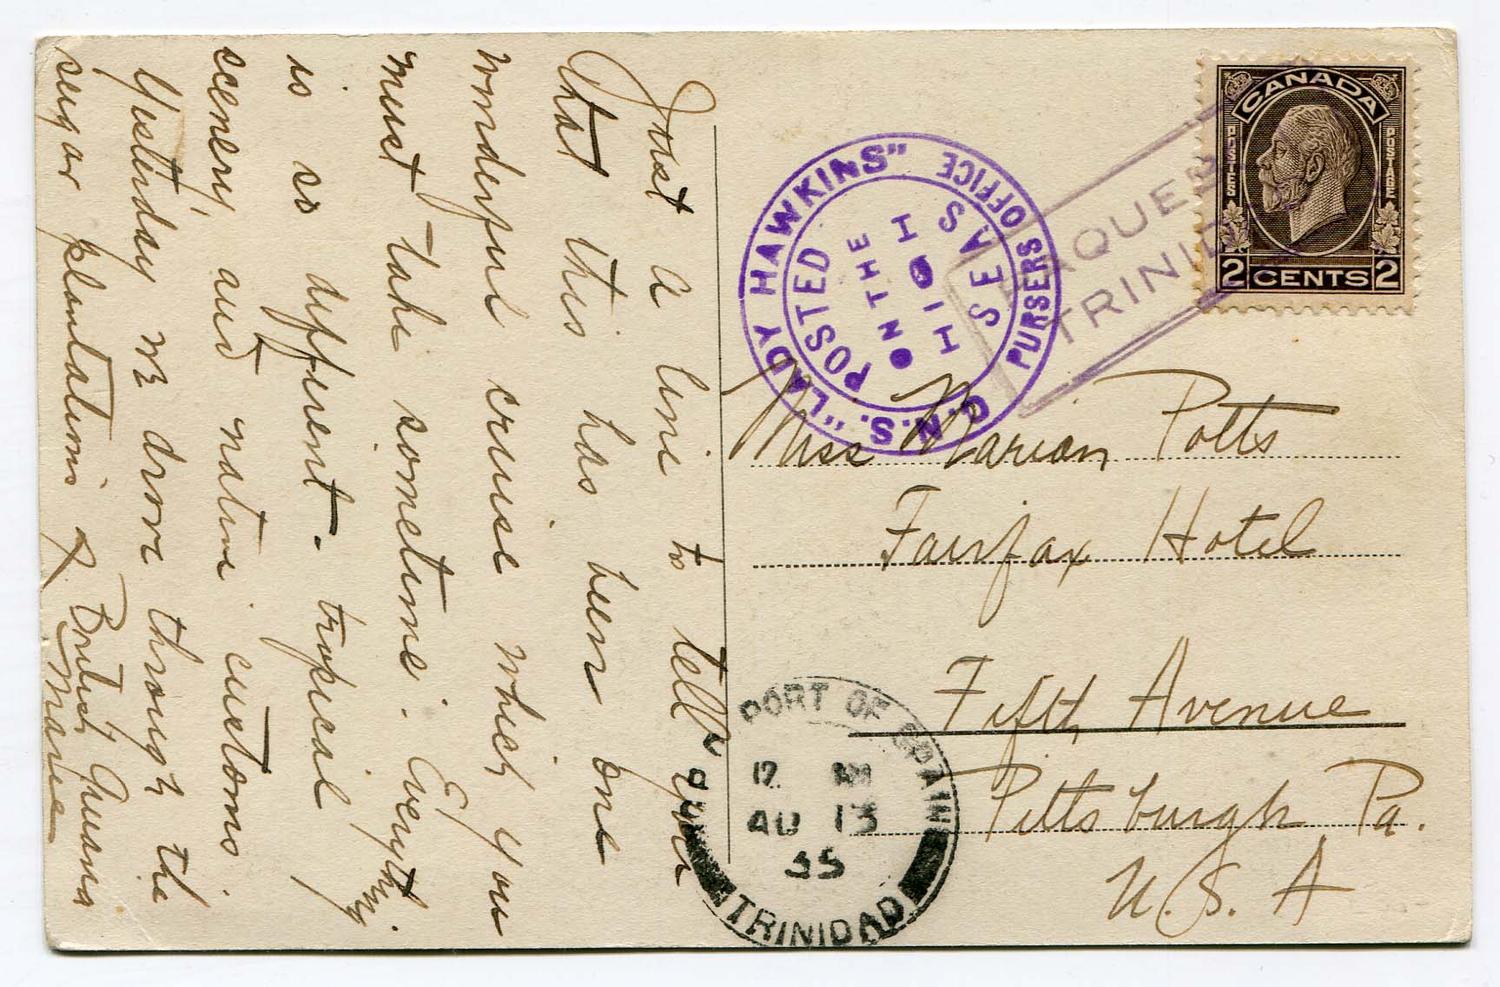 Just a line to tell you
that this has been one
wonderful cruise which you
must take sometime. Everything
is so different - tropical
scenery, and native customs.
Yesterday we drove through the
sugar plantations of British Guiana
Marie
C.N.S. "LADY HAWKINS" PURSERS OFFICE
POSTED
ON THE
HIGH
SEAS
PAQUEB
TRINID
CANADA
POSTES POSTAGE
2 CENTS 2
Miss Marian Potts
Fairfax Hotel
Fifth Avenue
Pittsburgh, Pa.
U.S.A
PORT OF SPAIN
12
AU 13
35
TRINIDAD